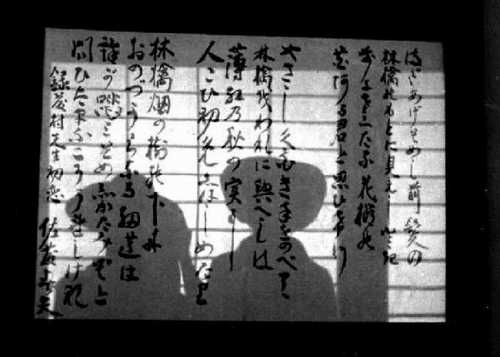 まだあげそめし前髪の
林檎のもとに見えしとき
前にさしたる花櫛の
花ある君と思ひけり
やさしく白き手をのべて
林檎をわれに與へしは
薄紅の秋の実に
人こひ初めしはじめなり
林檎畑の樹の下に
おのづからなる細道は
誰が踏みそめしかたみぞと
問ひたまふこそ
録藤村先生初恋 佐藤春夫